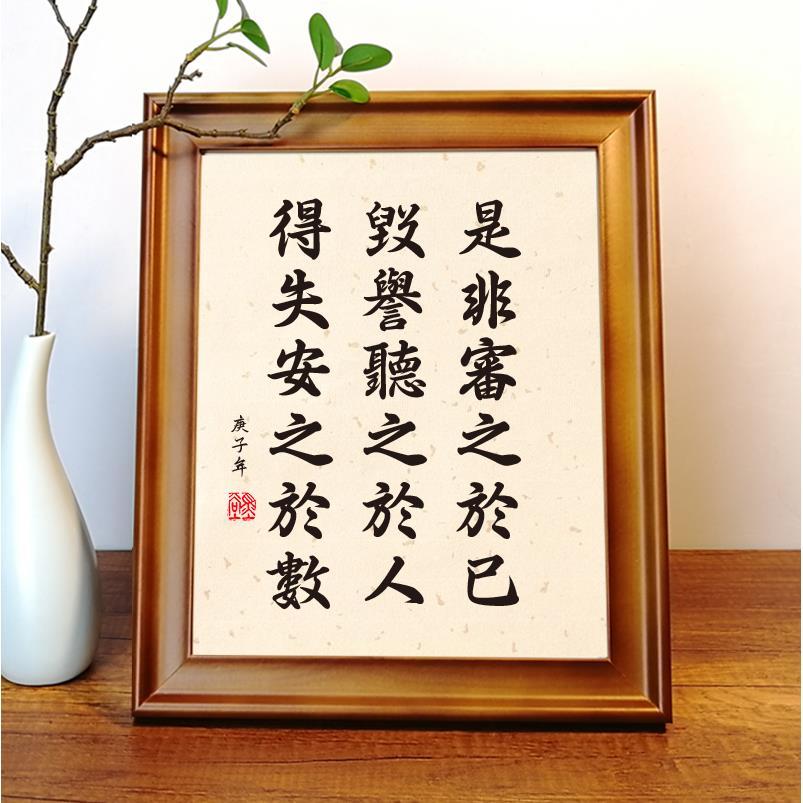 是非審之於己
毀譽聽之於人
得失安之於數
庚子年